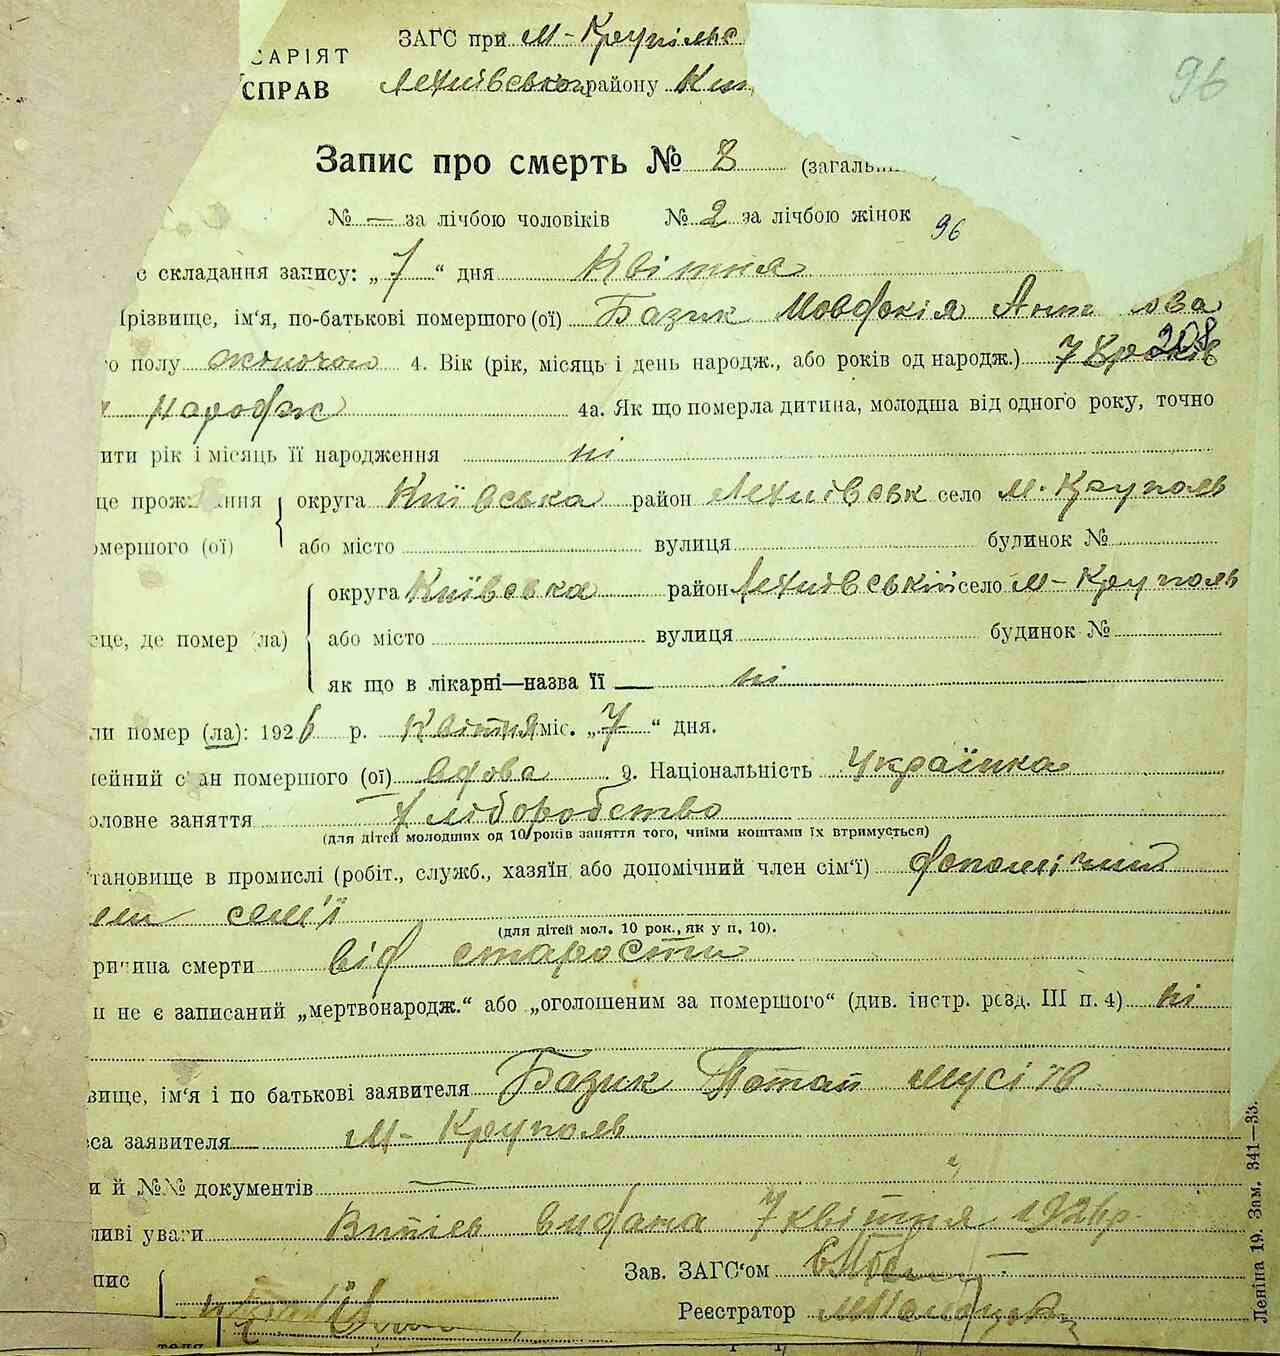 ЗАГС при м-Крупільс
САРІЯТ
Лехнівськог району Киї
СПРАВ
96
Запис про смерть № 8 (загальн
№ — за лічбою чоловіків № 2 за лічбою жінок
96
с складання запису: „7“ дня Квітня
Прізвище, ім‘я, по-батькові помершого (ої) Базик Мовдокія Анти ова
208
го полу жіночого 4. Вік (рік, місяць і день народж., або років од народж.) 78 років
народж 4а. Як що померла дитина, молодша від одного року, точно
ити рік і місяць її народження ні
це прож ання округа Київська район Лехнівськ село м-Круполь
омершого (ої) або місто вулиця будинок №
округа Київська район Лехнівський село м-Круполь
сце, де помер (ла) або місто вулиця будинок №
як що в лікарні—назва її ні
ли помер (ла): 1926 р. Квітня міс. „7“ дня.
мейний с ан помершого (ої) вдова 9. Національність Українка
оловне заняття Хліборобство
(для дітей молодших од 10 років заняття того, чиїми коштами їх втримується)
тановище в промислі (робіт., служб., хазяїн або допомічний член сім‘ї) допомічний
член сем'ї
(для дітей мол. 10 рок., як у п. 10).
ричина смерти від старости
и не є записаний „мертвонародж.“ або „оголошеним за помершого“ (див. інстр. розд. III п. 4) ні
вище, ім‘я і по батькові заявителя Базик Потап Мусі
еса заявителя м-Круполь
и й №№ документів —
ливі уваги Витяг видана 7 квітня 1926 р.
пис
Зав. ЗАГС‘ом
Реєстратор
теля
Леніна 19. Зам. 341—33.